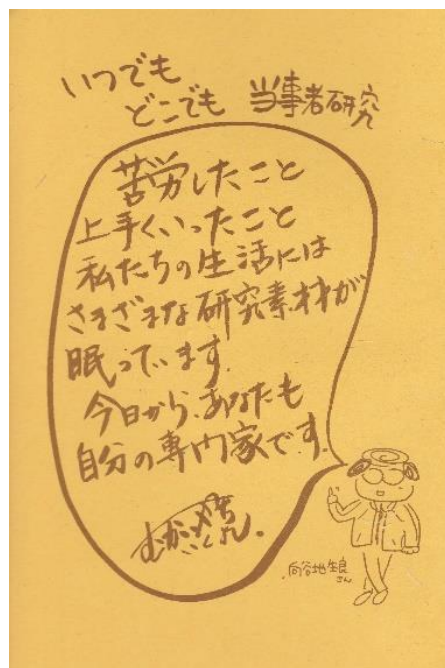 いつでも
どこでも 当事者研究
苦労したこと
上手くいったこと
私たちの生活には
さまざまな研究素材が
眠っています。
今日から、あなたも
自分の専門家です。
向谷地生良
さん